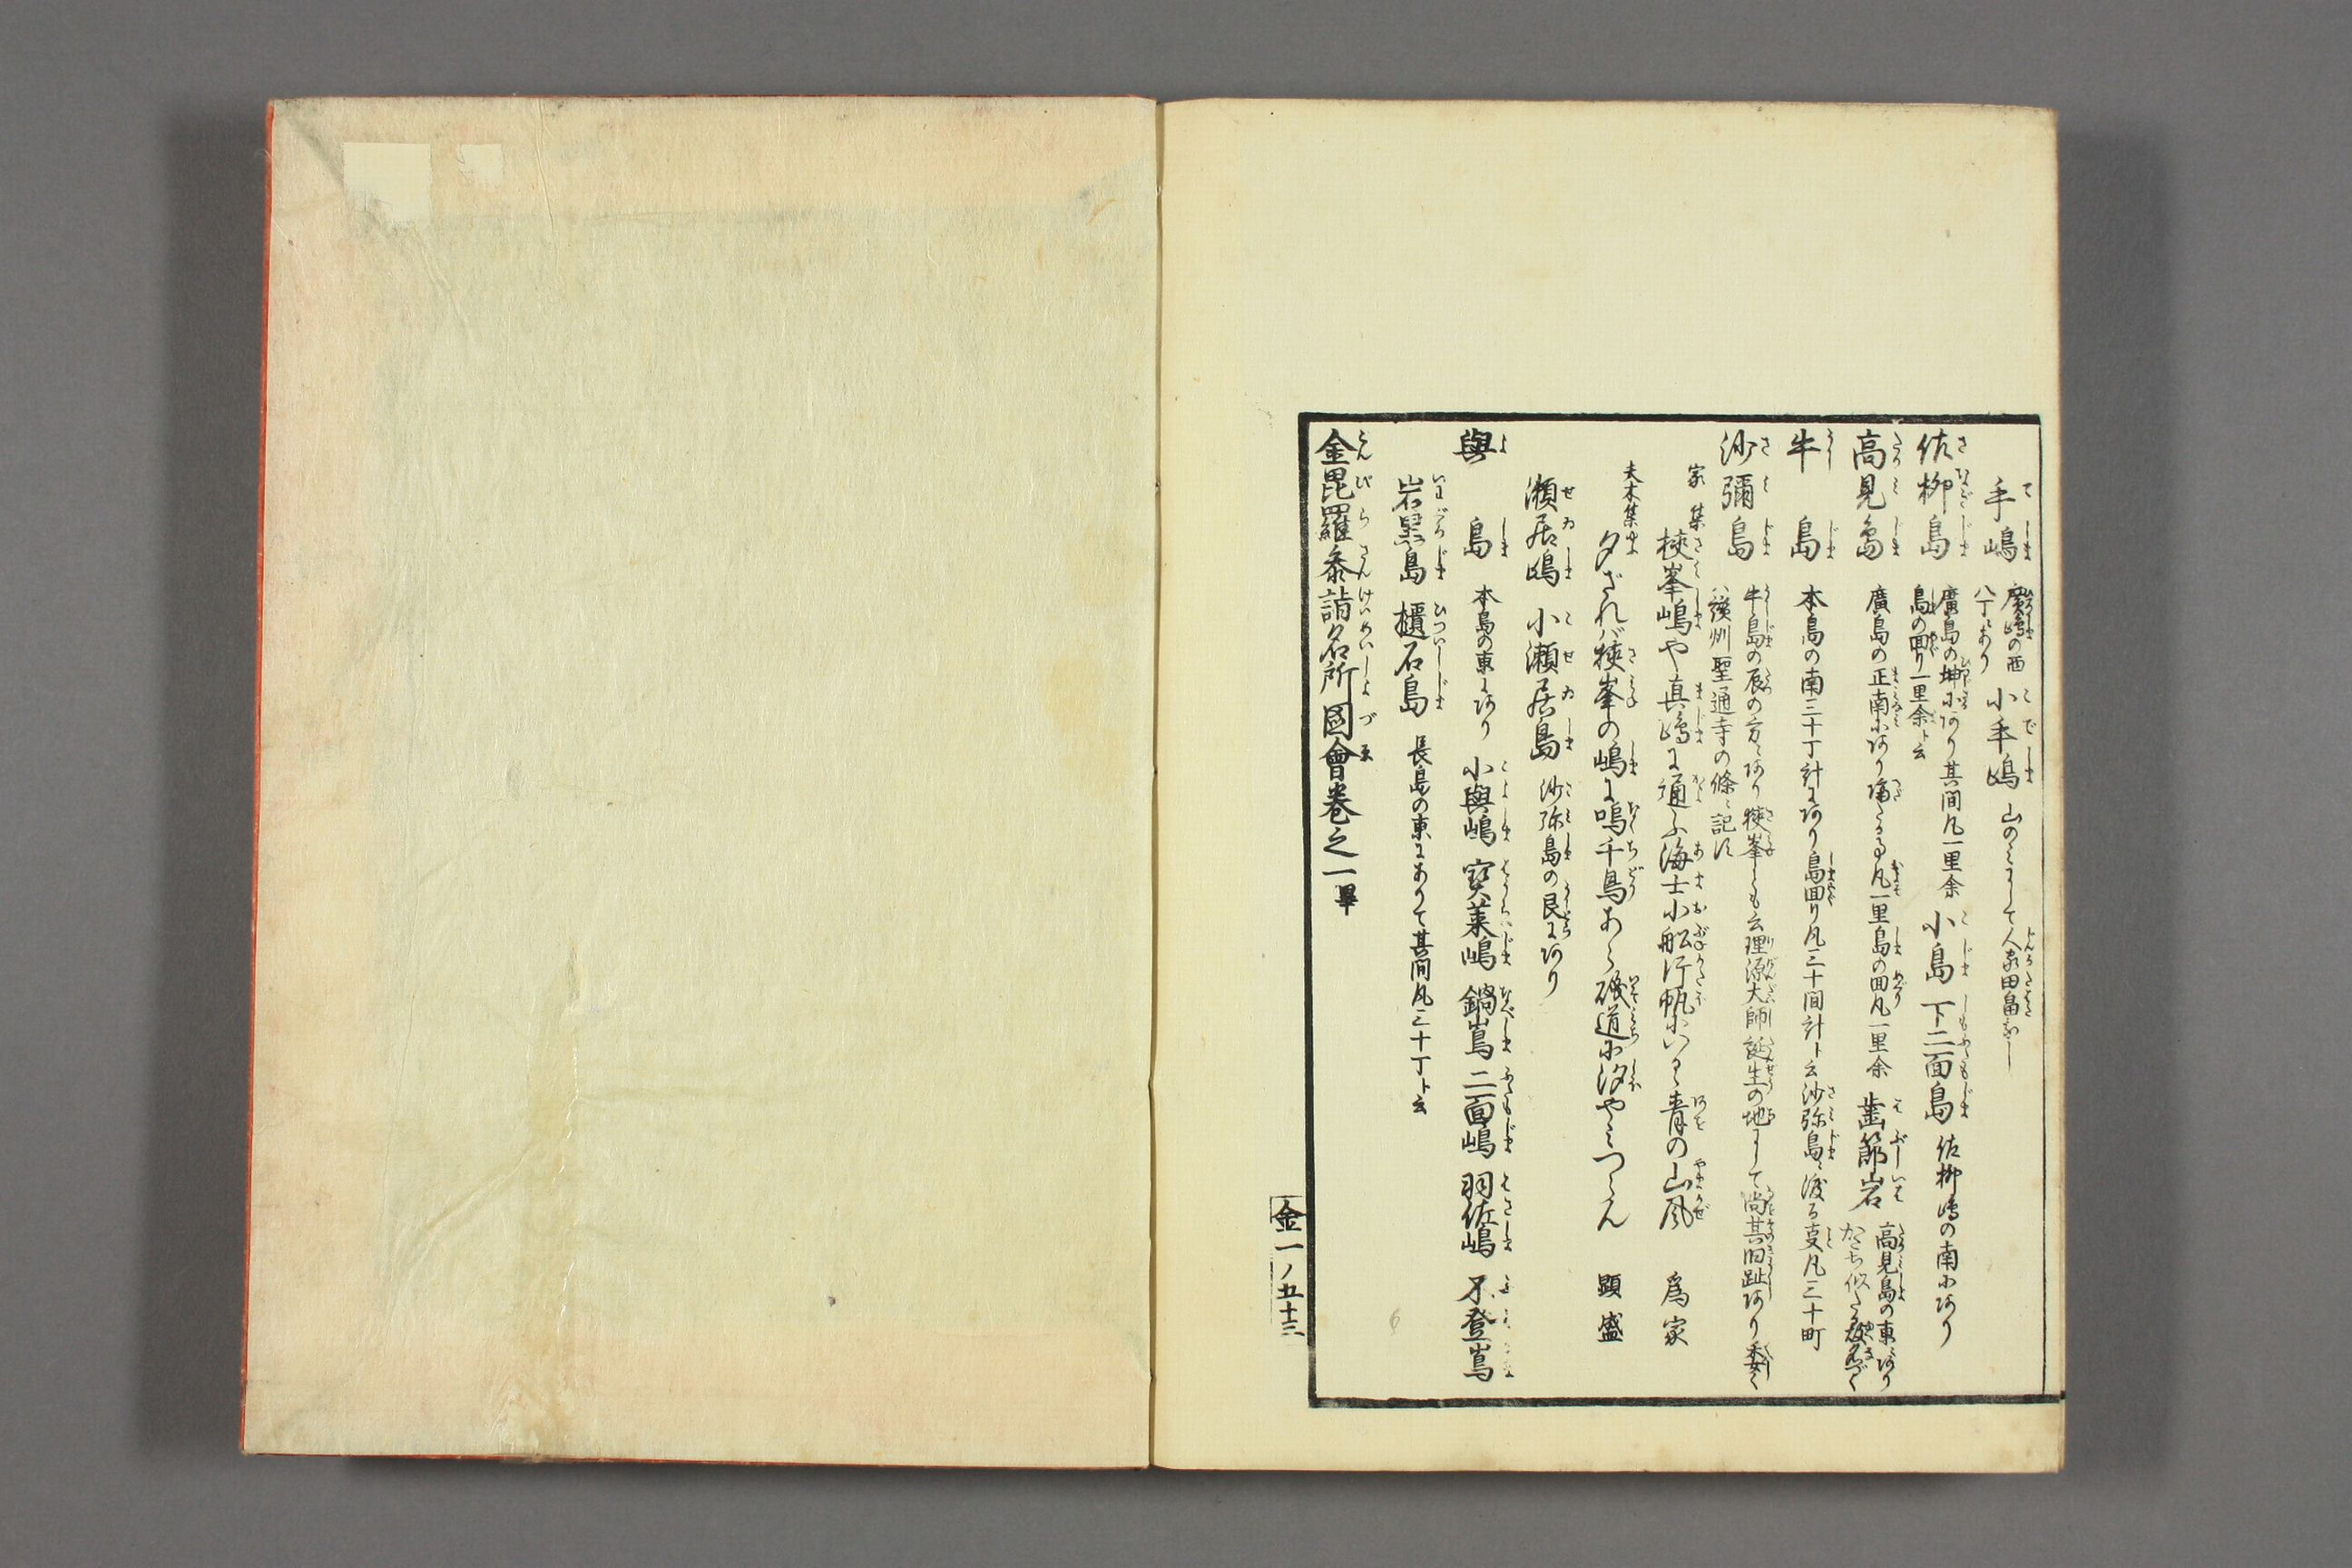 手嶋 廣嶋の西
八丁ニあり 小手嶋 山のミにして人家田畠なし
佐柳島 廣島の坤にあり其間凡一里余
島の囬り一里余ト云 小島 下二面島 佐柳嶋の南にあり
高見島 廣島の正南にあり 凡一里島の囬凡一里余 歯節岩 高見島の東ニあり
かたち似たる故名づく
牛島 本島の南三十丁計にあり島囬り凡三十間計ト云沙弥島ニ渡る亥凡三十町
沙彌島 牛島の辰の方ニあり狭岑しまとも云理源大師誕生の地にして尚其旧趾あり委く
ハ讃州聖通寺の條ニ記す
家集 狭峯嶋や真嶋に通ふ海士小舩行帆にかゝる青の山風 爲家
夫木集 夕ざれバ狭峯の嶋に鳴千鳥あら磯道に汐やミつらん 顕盛
瀬居嶋 小瀬居島 沙弥島の艮にあり
與島 本島の東にあり 小與嶋 寳莱嶋 鍋嶌 二面嶋 羽佐嶋 不登嶌
岩黒島 櫃石島 長島の東にありて其間凡三十丁ト云
金毘羅叅詣名所圖會巻之一畢
金一ノ五十三